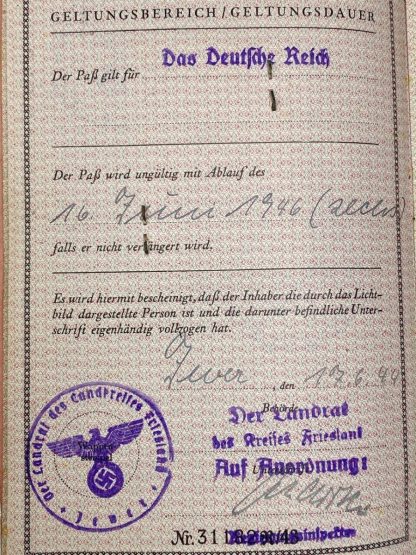 GELTUNGSBEREICH / GELTUNGSDAUER
Der Paß gilt für Das Deutsche Reich
Der Paß wird ungültig mit Ablauf des
16. Juni 1946 (sechs)
falls er nicht verlängert wird.
Es wird hiermit bescheinigt, daß der Inhaber die durch das Licht-
bild dargestellte Person ist und die darunter befindliche Unter-
schrift eigenhändig vollzogen hat.
Jever, den 17.6.44
Behörde
Der Landrat
des Kreises Friesland
Auf Anordnung:
Der Landrat des Landkreises Friesland
Nr. 31